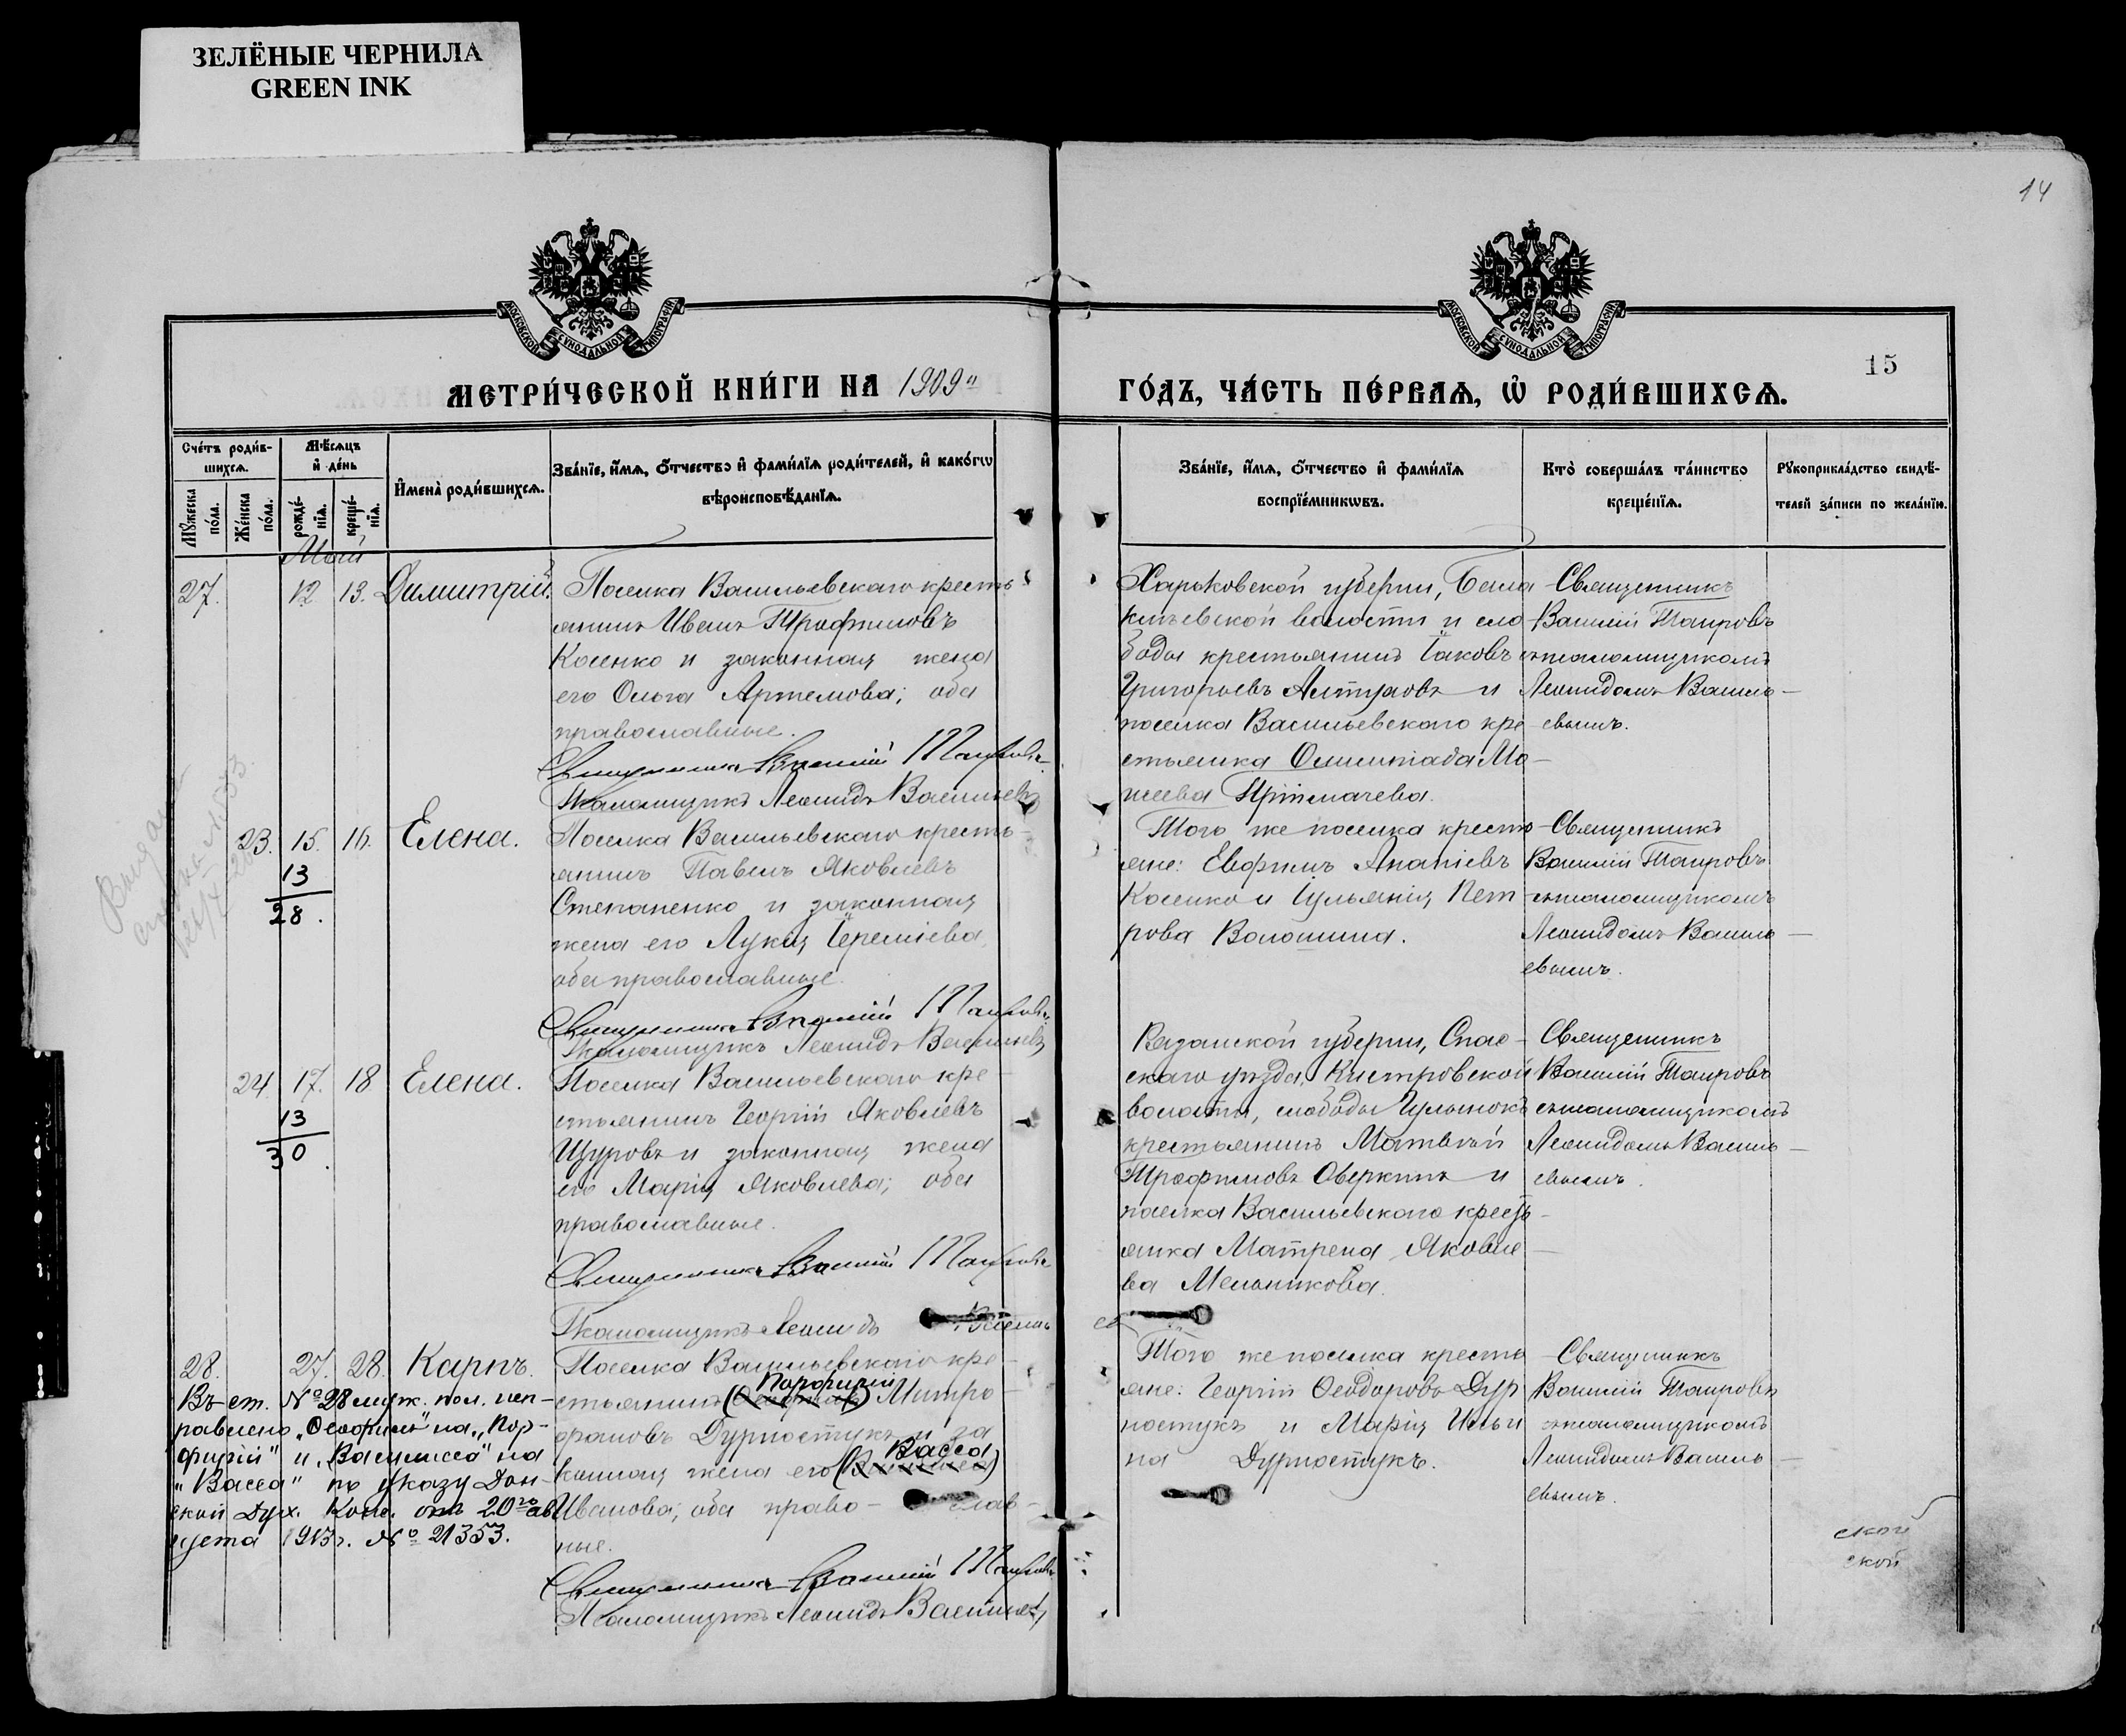 ЗЕЛЁНЫЕ ЧЕРНИЛА
GREEN INK
14
МОСКОВСКОЙ СѴНОДАЛЬНОЙ ТИПОГРАФІИ
МОСКОВСКОЙ СѴНОДАЛЬНОЙ ТИПОГРАФІИ
15
МЕТРИ́ЧЕСКОЙ КНИ́ГИ НА 1909
ГО́ДЪ, ЧА́СТЬ ПЕ́РВАѦ, Ѡ҆ РОДИ́ВШИХСѦ.
Сче́тъ роди́в-
шихсѧ.
Мꙋ́жеска по́ла.
Же́нска по́ла.
Мѣ́сѧцъ
и҆ де́нь
рожде́-
нїѧ.
креще́-
нїѧ.
И҆мена̀ роди́вшихсѧ.
Зва́нїе, и҆́мѧ, ѻ҆́тчество и҆ фами́лїѧ роди́телей, и҆ како́гѡ
вѣроисповѣ́данїѧ.
Зва́нїе, и҆́мѧ, ѻ҆́тчество и҆ фами́лїѧ
воспрїе́мникѡвъ.
Кто̀ соверша́лъ та́инство
креще́нїѧ.
Рꙋкоприкла́дство свидѣ́-
телей за́писи по жела́нїю.
Май
27. 12 13. Димитрій.
Поселка Васильевскаго кресть
янинъ Иванъ Трофимовъ
Косенко и законная жена
его Ольга Артемова; оба
православные.
Священникъ Василій Таировъ
Псаломщикъ Леонидъ Васильевъ
Харьковской губерніи,
волости и сло
боды крестьянинъ Іаковъ
Григорьевъ Алтуховъ и
поселка Васильевскаго кре
стьянка Олимпіада Мо
сеева Притмачева.
Священникъ
Василій Таировъ
съ псаломщикомъ
Леонидомъ Василь
евымъ.
23. 15. 16. Елена.
13
28.
Поселка Васильевскаго кресть-
янинъ Павелъ Яковлевъ
Степаненко и законная
жена его Лукія Іереміева,
оба православные.
Священникъ Василій Таировъ
Псаломщикъ Леонидъ Васильевъ
Того же поселка кресть
яне: Евфимъ Ананіевъ
Косенко и Іульянія Пет
рова Волошина.
Священникъ
Василій Таировъ
съ псаломщикомъ
Леонидомъ Василь
евымъ.
24. 17. 18 Елена.
13
30.
Поселка Васильевскаго кре
стьянинъ Георгій Яковлевъ
Щуровъ и законная жена
его Марія Яковлева; оба
православные.
Священникъ Василій Таировъ
Псаломщикъ Леонидъ Василь
евъ
Рязанской губерніи, Спас-
скаго уѣзда, Кистровской
волости, слободы Гулынокъ
крестьянинъ Матвѣй
Трофимовъ Оверкинъ и
поселка Васильевскаго кресть
янка Матрена Яковле
ва Мельникова.
Священникъ
Василій Таировъ
съ псаломщикомъ
Леонидомъ Василь
евымъ.
28. 27. 28. Карпъ.
Въ ст. № 28 муж. пол. исп-
равлено „Ѳеофилъ" на „Пор-
фирій" и „Василисса" на
„Васса" по указу Дон-
ской Дух. Конс. отъ 20го ав
густа 1913 г. № 21353.
Поселка Васильевскаго кре
Порфирій
стьянинъ Митро
фановъ Дурностукъ и за
Васса
конная жена его
Иванова; оба право-слав-
ные.
Священникъ Василій Таировъ
Псаломщикъ Леонидъ Васильевъ
Того же поселка кресть
яне: Георгій Ѳеодоровъ Дур
ностукъ и Марія Ильи
на Дурностукъ.
Священникъ
Василій Таировъ
съ псаломщикомъ
Леонидомъ Василь
евымъ.
ской
ской